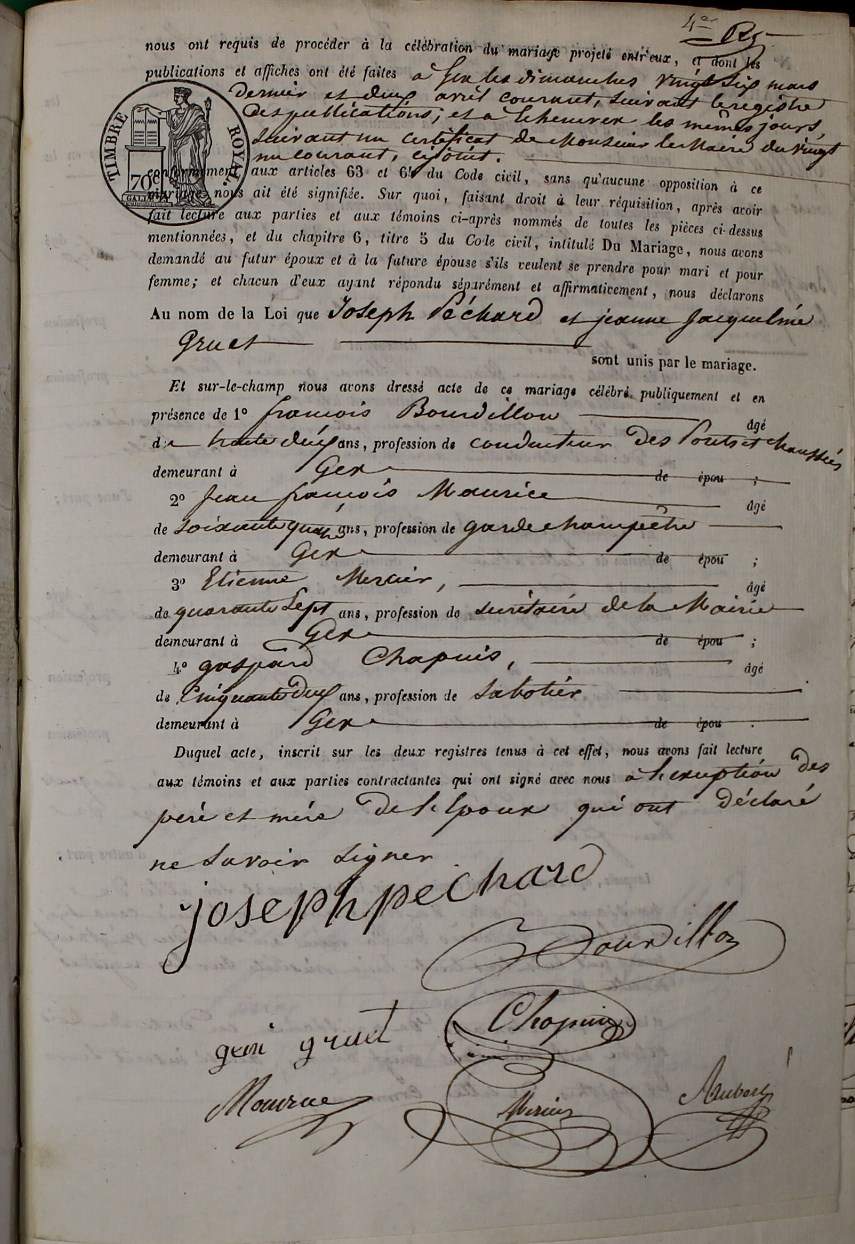 4e
nous ont requis de procéder à la célébration du mariage projeté entr'eux, et dont les
publications et affiches ont été faites à Gex les dimanches vingt six mars
dernier et deux avril courant, suivant le registre
des publications; et a Echenevex les mêmes jours,
suivant un certificat de Monsieur le Maire du vingt
un courant, cijoint.
TIMBRE ROYAL.
70c
conformément aux articles 63 et 64 du Code civil, sans qu'aucune opposition à ce
mariage nous ait été signifiée. Sur quoi, faisant droit à leur réquisition, après avoir
fait lecture aux parties et aux témoins ci-après nommés de toutes les pièces ci-dessus
mentionnées, et du chapitre 6, titre 5 du Code civil, intitulé Du Mariage, nous avons
demandé au futur époux et à la future épouse s'ils veulent se prendre pour mari et pour
femme; et chacun d'eux ayant répondu séparément et affirmativement, nous déclarons
Au nom de la Loi que Joseph Péchard et jeanne Jacqueline
Gruet
sont unis par le mariage.
Et sur-le-champ nous avons dressé acte de ce mariage célébré publiquement et en
présence de 1o françois Bourdillon âgé
de trente deux ans, profession de conducteur des Ponts et chaussées
demeurant à Gex de épou ;
2o Jean françois Maurice âgé
de soixante quatre ans, profession de garde champêtre
demeurant à Gex de épou ;
3o Etienne Mercier, âgé
de quarante Sept ans, profession de secrétaire de la Mairie
demeurant à Gex de épou ;
4o gaspard Chapuis, âgé
de Cinquante deux ans, profession de Sabotier
demeurant à Gex de épou .
Duquel acte, inscrit sur les deux registres tenus à cet effet, nous avons fait lecture
aux témoins et aux parties contractantes qui ont signé avec nous à l'exception des
père et mère de l'Epoux qui ont déclaré
ne savoir signer
joseph pechard
Bourdillon
Chapuis
gruet
Maurice
Mercier